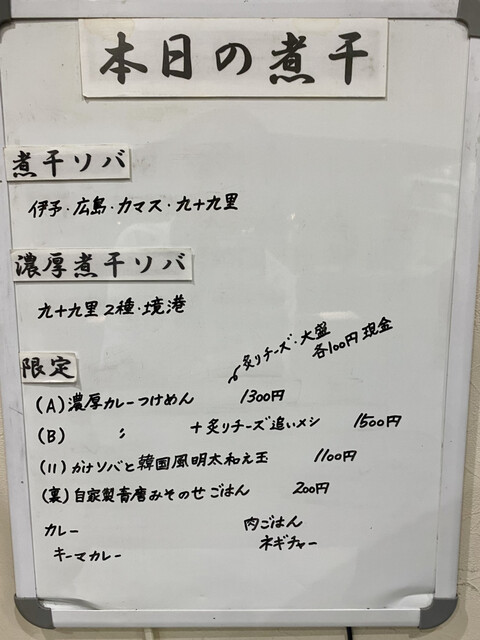 本日の煮干
煮干ソバ
伊予・広島・カマス・九十九里
濃厚煮干ソバ
九十九里2種・境港
限定
炙りチーズ・大盛
各100円 現金
(A) 濃厚カレーつけめん 1300円
(B) 〃 +炙りチーズ追いメシ 1500円
(11) かけソバと韓国風明太和え玉 1100円
(裏) 自家製青唐みそのせごはん 200円
カレー 肉ごはん
キーマカレー ネギチャー